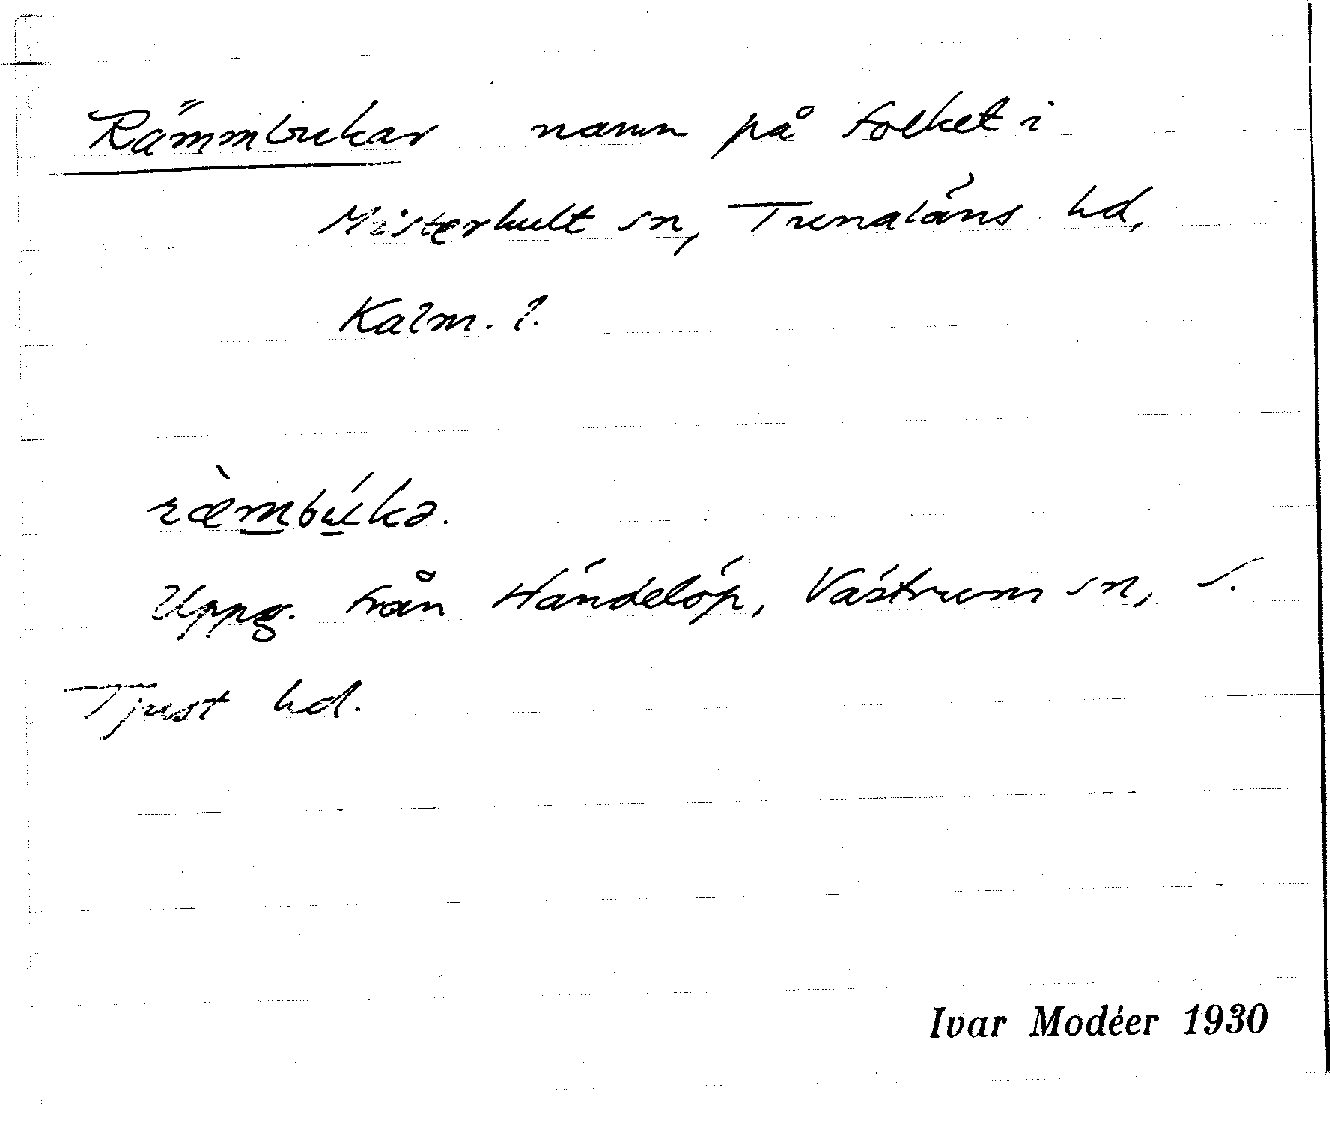 Rämmbukar namn på folket i
Misterhult sn, Tunaläns hd,
Kalm. l.
ræ̀mbúkə.
Uppg. från Händelöp, Västrum sn, S.
Tjust hd.
Ivar Modéer 1930